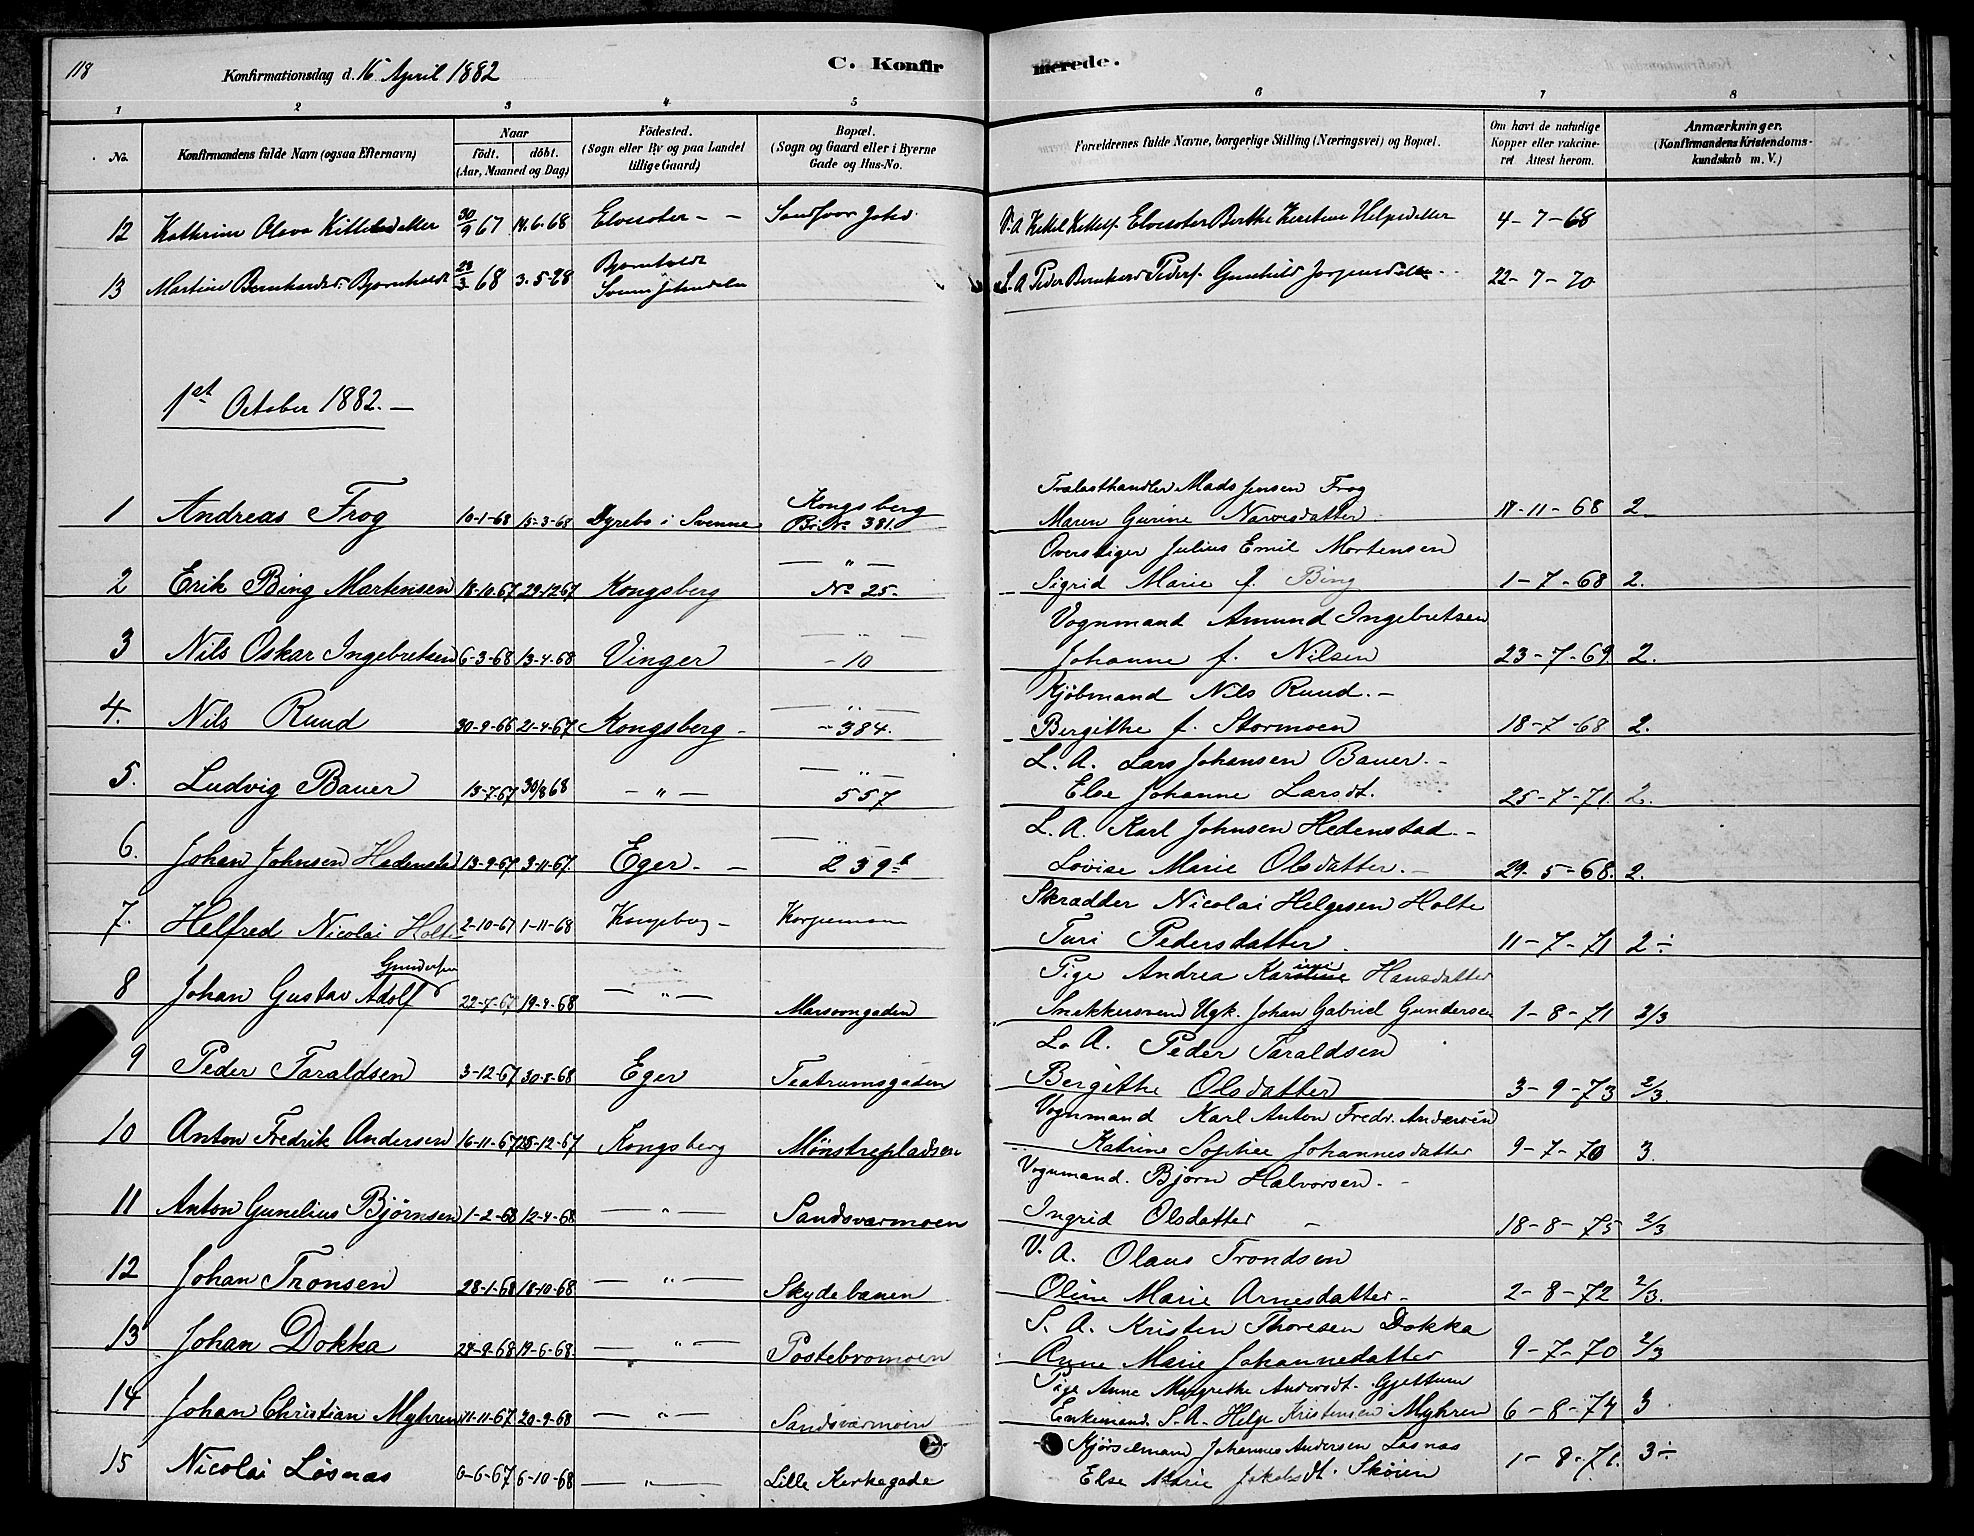 118
Konfirmationsdag d. 16 April 1882
C. Konfirmerede.
1 2 3 4 5 6 7 8
No.
Konfirmandens fulde Navn (ogsaa Efternavn)
Naar
født. døbt.
(Aar, Maaned og Dag)
Födested.
(Sogn eller By og paa Landet
tillige Gaard)
Bopæl.
(Sogn og Gaard eller i Byerne
Gade og Hus-No.
Forældrenes fulde Navne, borgerlige Stilling (Næringsvei) og Bopæl.
Om havt de naturlige
Kopper eller vakcine-
ret Attest herom.
Anmærkninger.
(Konfirmandens Kristendoms-
kundskab m. V.)
12 Kathrine Olava Kittelsdatter 30/9 67 14-6-68 4-7-68
13 Martine Bernhardsd. Bjørnholdt 3-5-68 Bjornholdt 22-7-70
L. A. Peder Bernhard Peders. Gunhild Jorgensdatter
1st October 1882. —
Tralasthandler Mads Jensen Frog
1 Andreas Frog 10-1-68 15-3-68 Dyrebo i Svenne Kongsberg Br. No 381. Maren Gurine Narvesdatter 18-11-68 2.
Overstiger Julius Emil Mortensen
2 Erik Bing Martensen 18-10-67 29-12-67 Kongsberg — " — No 25. Sigrid Marie f. Bing 1-7-68 2.
Vognmand Amund Ingebretsen
3 Nils Oskar Ingebretsen 6-3-68 13-4-68 Vinger — " — - 10 Johanne f. Nilsen 23-7-69 2.
Kjöbmand Nils Ruud. -
4. Nils Ruud 30-9-66 21-4-67 Kongsberg - — " — - 384. Bergithe f. Stormoen 18-7-68 2.
L. A. Lars Johansen Bauer. -
5. Ludvig Bauer 13-7-67 30/8 68 - " - — " — 557 Else Johanne Larsdt. 25-7-71 2.
L. A. Karl Johnsen Hedenstad -
6. Johan Johnsen Hedensta 13-9-67 3-11-67. Eger - — " — 239b Lovise Marie Olsdatter. - 29-5-68. 2.
Skrædder Nicolai Helgesen Holte
7. Helfred Nicolai Holte 2-10-67 1-11-68 Kongsberg - Turi Pedersdatter. 11-7-71 2÷
Pige Andrea Karstine Hansdatter
8 Johan Gustav Adolf Gundersen 22-7-67 19-4-68 — " — Snekkersvend Ugk. Johan Gabriel Gundersen 1-8-71 2/3
L. A. Peder Taraldsen
9 Peder Taraldsen 3-12-67 30-8-68 Eger Teatrumsgaden Bergithe Olsdatter 3-9-73 2/3.
Vognmand Karl Anton Fredr. Andersen
10 Anton Fredrik Andersen 16-11-67 25-12-67 Kongsberg Mönstrepladsen Katrine Sophie Johannesdatter 9-7-70 3.
Vognmand. Bjorn Halvorsen. -
11 Anton Gunelius Bjørnsen 1-2-68 12-4-68 — " — Sandsværmoen Ingrid Olsdatter - 18-8-75 2/3
V. A. Olaus Trondsen
12 Johan Tronsen 28-1-68 18-10-68 — " — Skydebanen Oline Marie Arnesdatter - 2-8-72 2/3.
S. A. Kristen Thoresen Dokka
13 Johan Dokka 19-6-68 — " — Postebromoen Anne Marie Johannedatter 9-7-70 2/3
Pige Anne Margrethe Andersdt. Gjettum
14 Johan Christian Myhren 11-11-67 20-9-68 — " — Sandsværmoen Enkemand. S. A. Helge Kristensen Myhren 6-8-74 3
Kjørselmand Johannes Andersen Løsnas
15 Nicolai Løsnas 6-6-67 6-10-68 — " — Lille Kirkegade Else Marie Jakobsdt. Skøien 1-8-71. 3÷